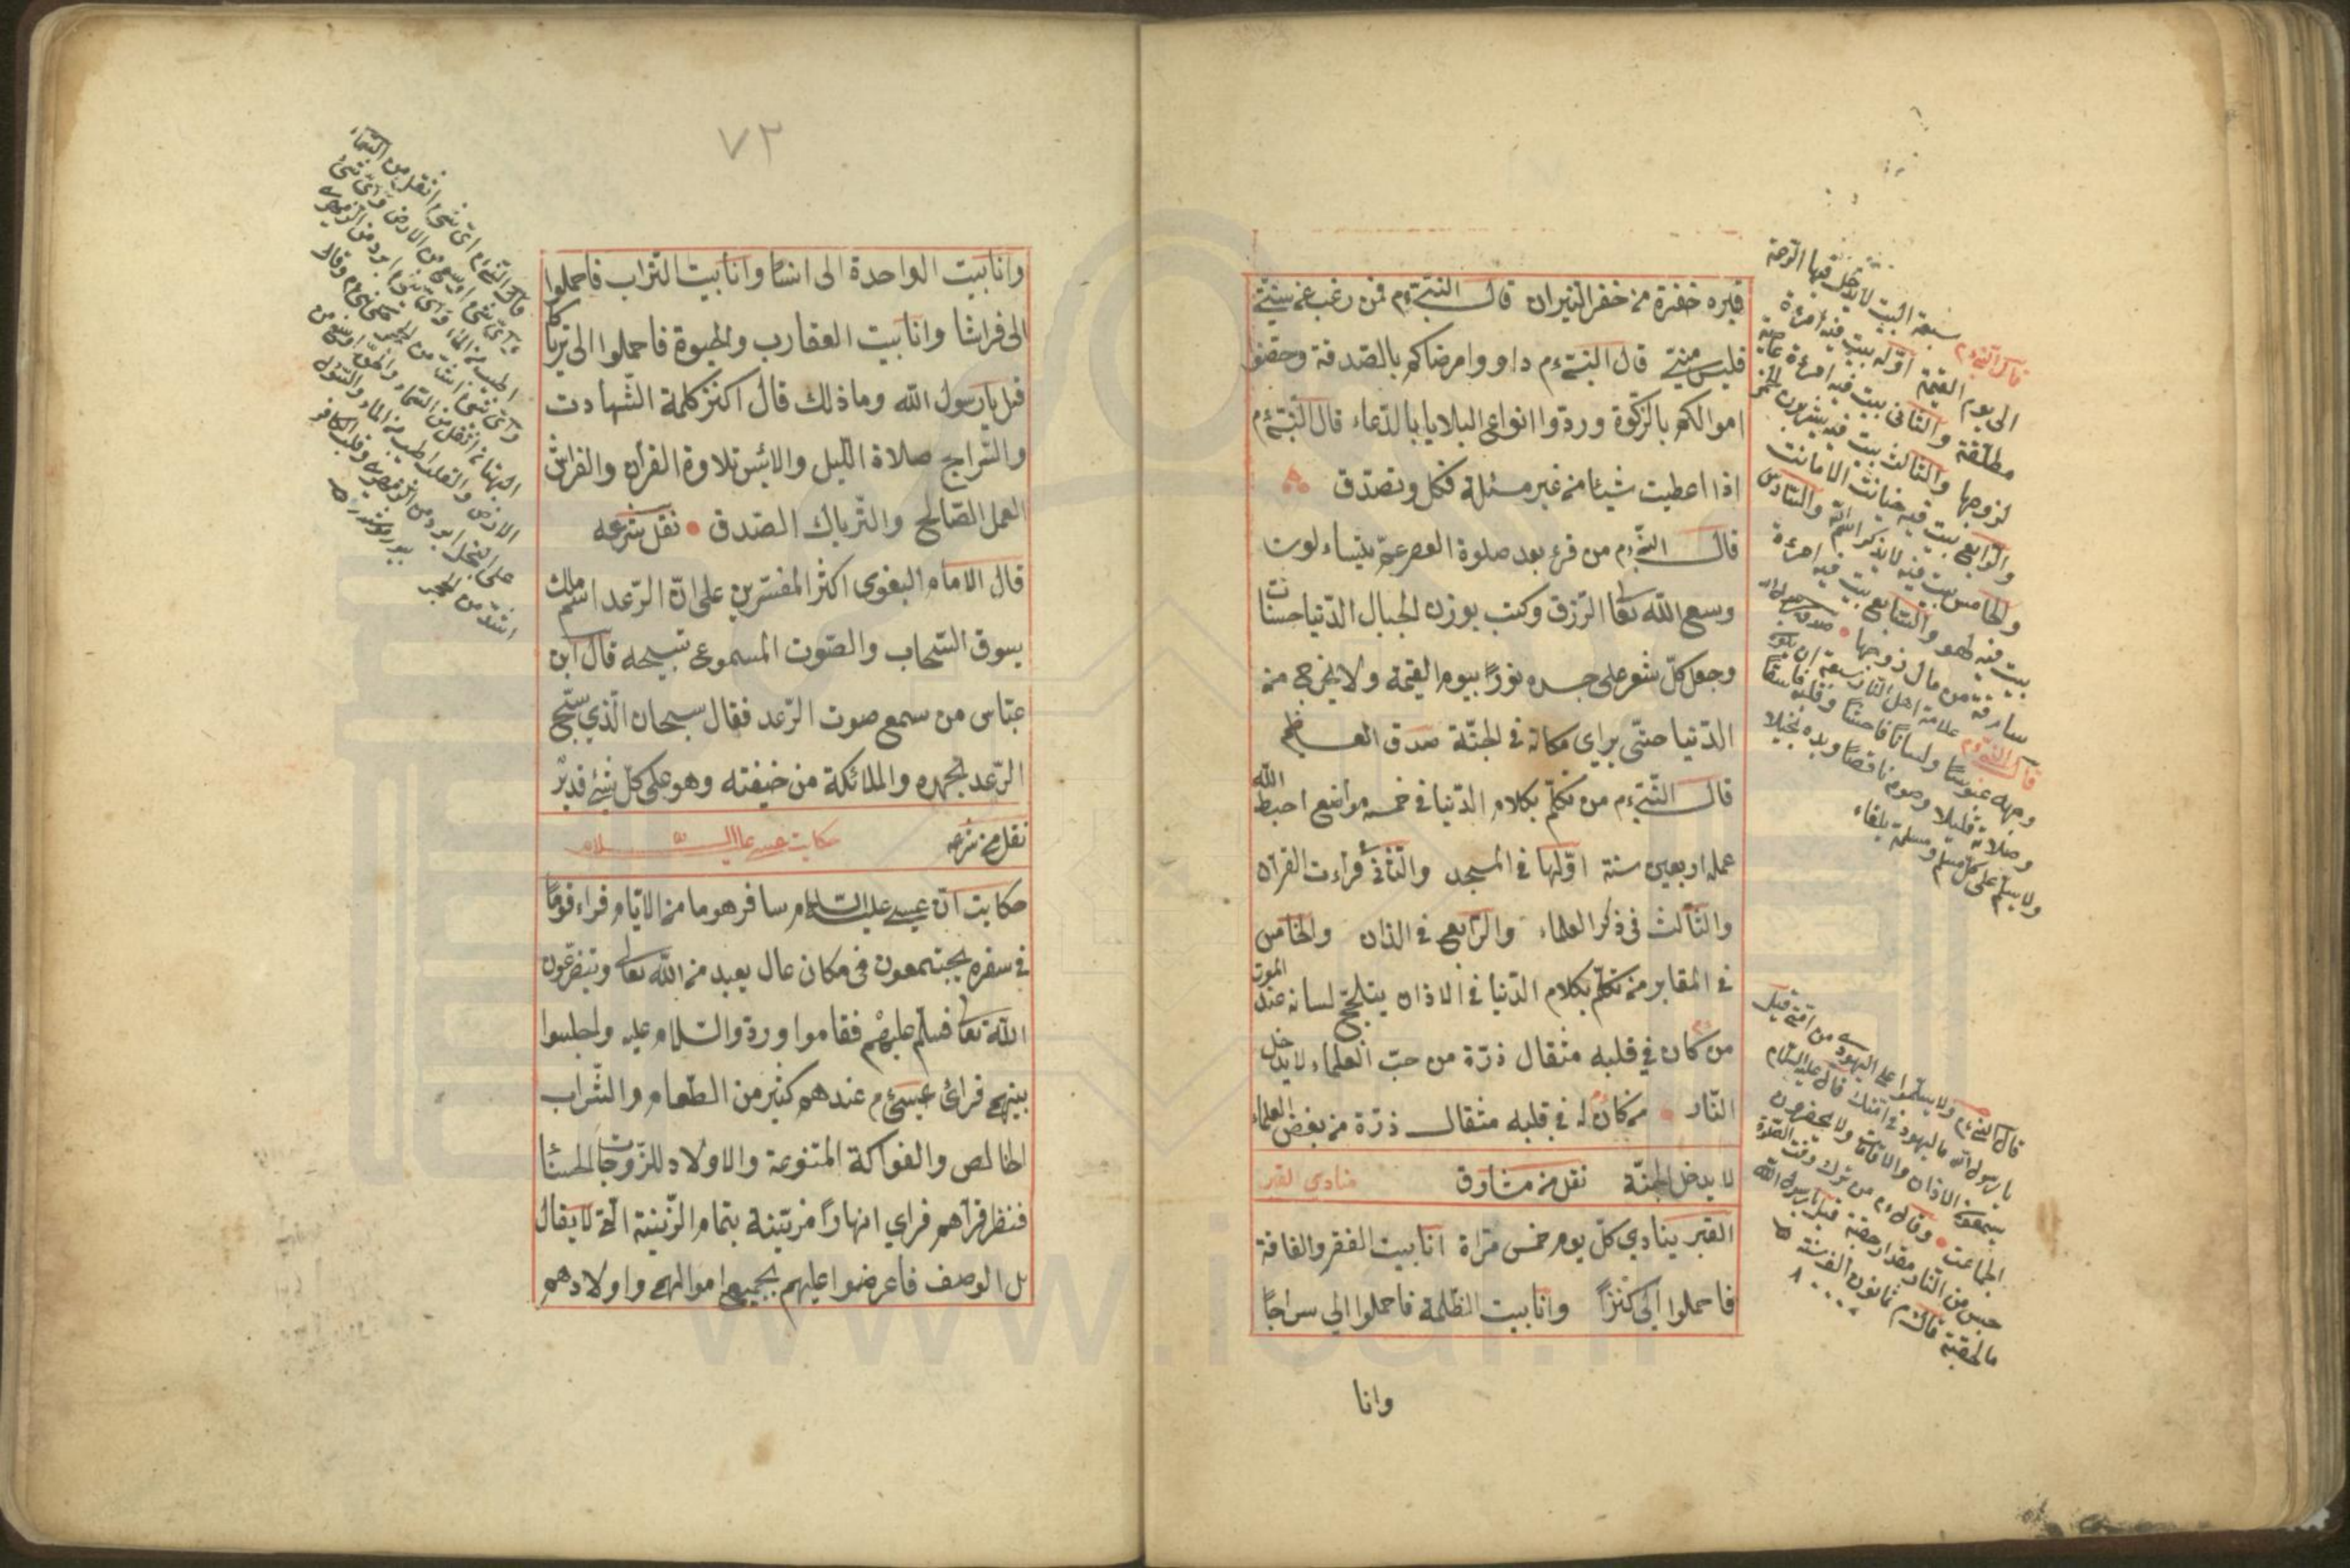 قبره حفرة من حفر النيران قال النبى‌ءم فمن رغب عن سنتى
فليس منى قال النبى‌ءم داووا مرضاكم بالصدقة وحصنوا
اموالكم بالزكوة وردوا انواع البلايا بالدعاء قال النبى‌ءم
اذا اعطيت شيئا من غير مسئلة فكل وتصدق
قال النبى‌ءم من قرء بعد صلوة العصر عم يتساءلون
وسع الله تعا الرزق وكتب بوزن الجبال الدنيا حسنات
وجعل كل شعر على جسده نورًا بيوم القيمة ولا يخرج من
الدنيا حتى يراى مكانه فى الجنة صدق العظيم
قال النبى‌ءم من تكلم بكلام الدنيا فى خمسه مواضع احبط الله
عمله اربعين سنة اولها فى المسجد والثانى قراءت القرآن
والثالث فى ذكر العلماء والرابع فى الذان والخامس
فى المقابر من تكلم بكلام الدنيا فى الاذان يتلجلج لسانه عند الموت
من كان فى قلبه مثقال ذرة من حب العلماء لا يدخل
النار من كان له فى قلبه مثقال ذرة من بغض العلماء
لا يدخل الجنة نقل من مشارق منادى القبر
القبر ينادي كل يوم خمس مراة انا بيت الفقر والفاقة
فاحملوا الى كنزًا وانا بيت الظلمة فاحملوا الي سراجًا
وانا
قال النبى‌ءم سبعة البيت لا يدخل فيها الرحمة
الى يوم القيمة اوله بيت فيه امرءة
مطلقة والثانى بيت فيه امرءة عاصية
لزوجها والثالث بيت فيه يشربون الخمر
والرابع بيت فيه خيانت الامانت
والخامس بيت فيه لا يذكر اسم الله والسادس
بيت فيه طهو والسابع بيت فيه امرءة
سارقة من مال زوجها
قال النبى‌ءم علامة اهل النار سبعة ان يكون
وجهه عبوسًا ولسانًا فاحشًا وقلبه فاسقًا
وصلاته قليلا وصومه ناقصًا ويده بخيلا
ولا يسلم على كل مسلم ومسلمة يلقاء
قال النبى‌ءم ولا يسلموا على اليهودى من امتى قيل
يا رسول الله ما اليهود فى امتك قال عليه السلام
يسمعون الاذان والاقامت ولا يحضرون
الجماعت وقال‌ءم من ترك وقت الصلوة
حبس من النار مقدار حقبة قيل يا رسول الله
ما الحقبة قال‌ءم ثمانون الف سنة
٨٠٠٠٠
٧٣
وانا بيت الواحدة الى انسًا وانا بيت التراب فاحملوا
الى فراشا وانا بيت العقارب والحيوة فاحملوا الى ترياكا
قيل يا رسول الله وما ذلك قال اكنز كلمة الشهادت
والسراج صلاة الليل والانيس تلاوة القرآن والفراش
العمل الصالح والترياك الصدق نقل شرعه
قال الامام البغوى اكثر المفسرين على ان الرعد اسم ملك
يسوق السحاب والصوت المسموع تسبيحه قال ابن
عباس من سمع صوت الرعد فقال سبحان الذي يسبح
الرعد بحمده والملائكة من خيفته وهو على كل شئ قدير
نقل من شرعه حكايت عيسى عليه السلام
حكايت ان عيسى عليه السلام سافر هوما من الايام فراء قومًا
فى سفره يجتمعون فى مكان عال يعبد من الله تعالى ويتضرعون
الله تعا فسلم عليهم فقاموا وردوا السلام عليه واجلسوا
بينهم فرائ عيسى‌ءم عندهم كثير من الطعام والشراب
الخالص والفواكة المتنوعة والاولاد للزوجات الحسنا
فنظر قراهم فراي انهارًا مزينة بتمام الزينة انه لا يقال
بل الوصف فاعرضوا عليهم بجميع اموالهم واولادهم
قال النبى‌ءم اى شئ اثقل من السماء
واى شئ اوسع من الارض واى شئ
واى شئ اشد من الحجر
البهتان اثقل من السماء والحق اوسع من
الارض
اشد من الحجر